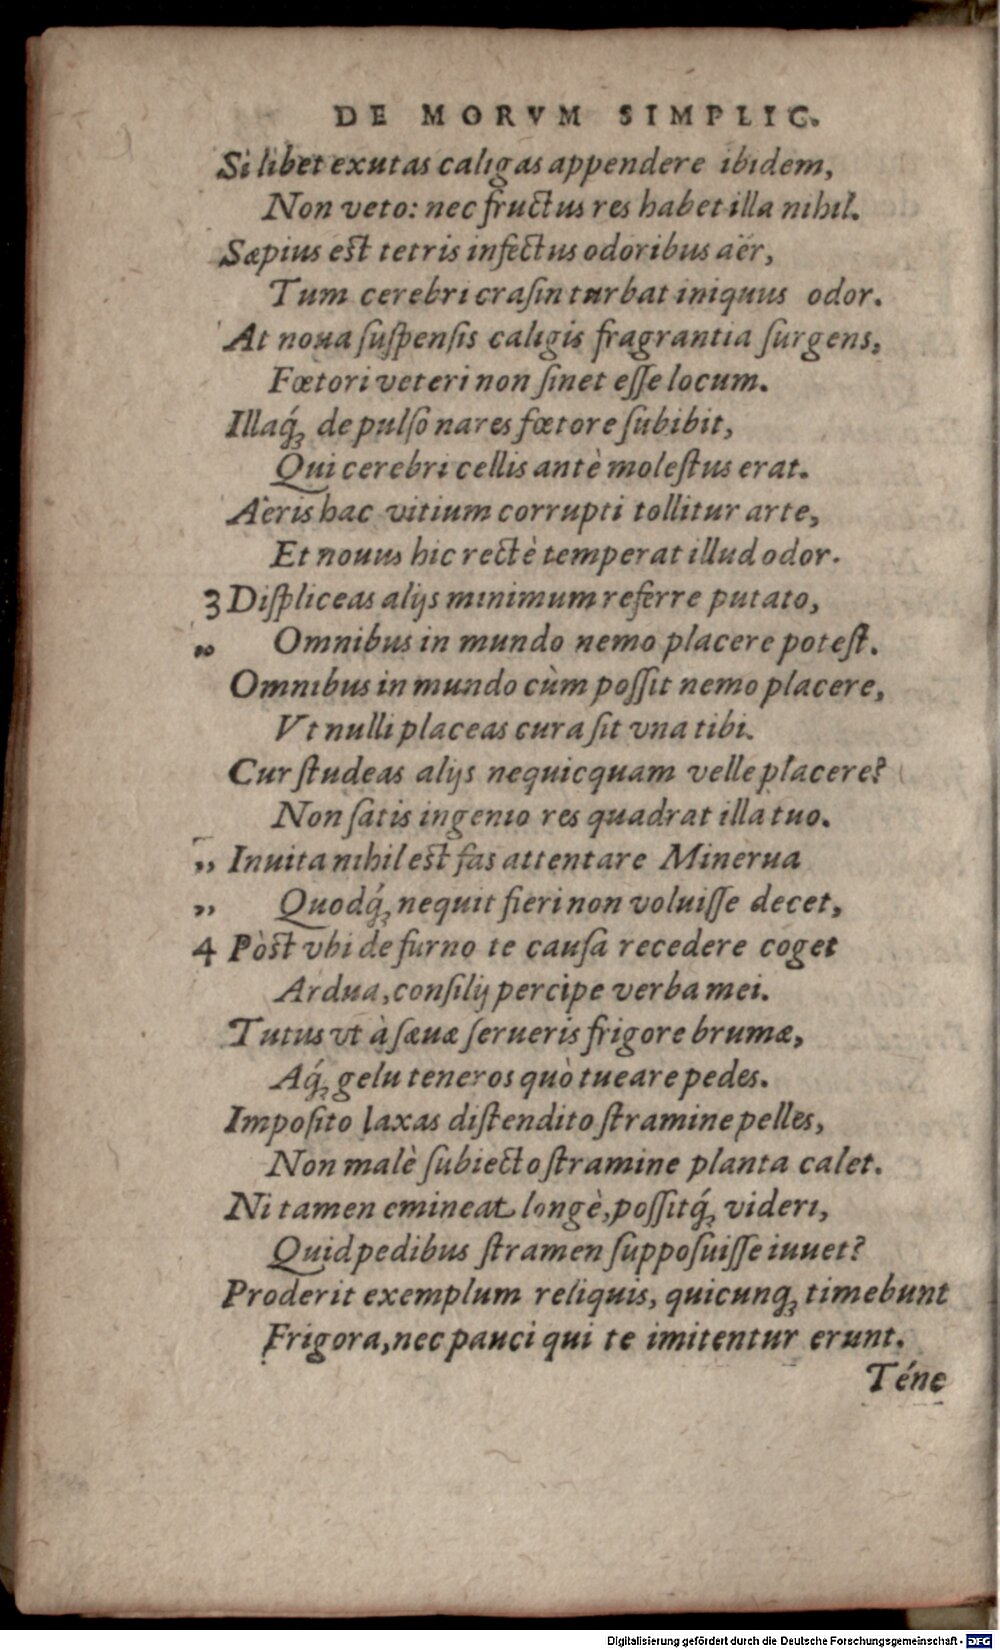 DE MORVM SIMPLIC.
Si libet exutas caligas appendere ibidem,
Non veto: nec fructus res habet illa nihil.
Sæpius est tetris infectus odoribus aër,
Tum cerebri crasin turbat iniquus odor.
At noua suspensis caligis fragrantia surgens,
Fœtori veteri non sinet esse locum.
Illaq́; depulso nares fœtore subibit,
Qui cerebri cellis antè molestus erat.
Aëris hac vitium corrupti tollitur arte,
Et nouus hic rectè temperat illud odor.
3 Displiceas alijs minimum referre putato,
„ Omnibus in mundo nemo placere potest.
Omnibus in mundo cùm possit nemo placere,
Vt nulli placeas cura sit vna tibi.
Cur studeas alijs nequicquam velle placere?
Non satis ingenio res quadrat illa tuo.
„ Inuita nihil est fas attentare Minerua
„ Quodq́; nequit fieri non voluisse decet,
4 Pòst vbi de furno te causa recedere coget
Ardua, consilij percipe verba mei.
Tutus vt à sæuæ serueris frigore brumæ,
Aq́; gelu teneros quò tueare pedes.
Imposito laxas distendito stramine pelles,
Non malè subiecto stramine planta calet.
Ni tamen emineat longè, possitq́; videri,
Quid pedibus stramen supposuisse iuuet?
Proderit exemplum reliquis, quicunq; timebunt
Frigora, nec pauci qui te imitentur erunt.
Téne
Digitalisierung gefördert durch die Deutsche Forschungsgemeinschaft - DFG